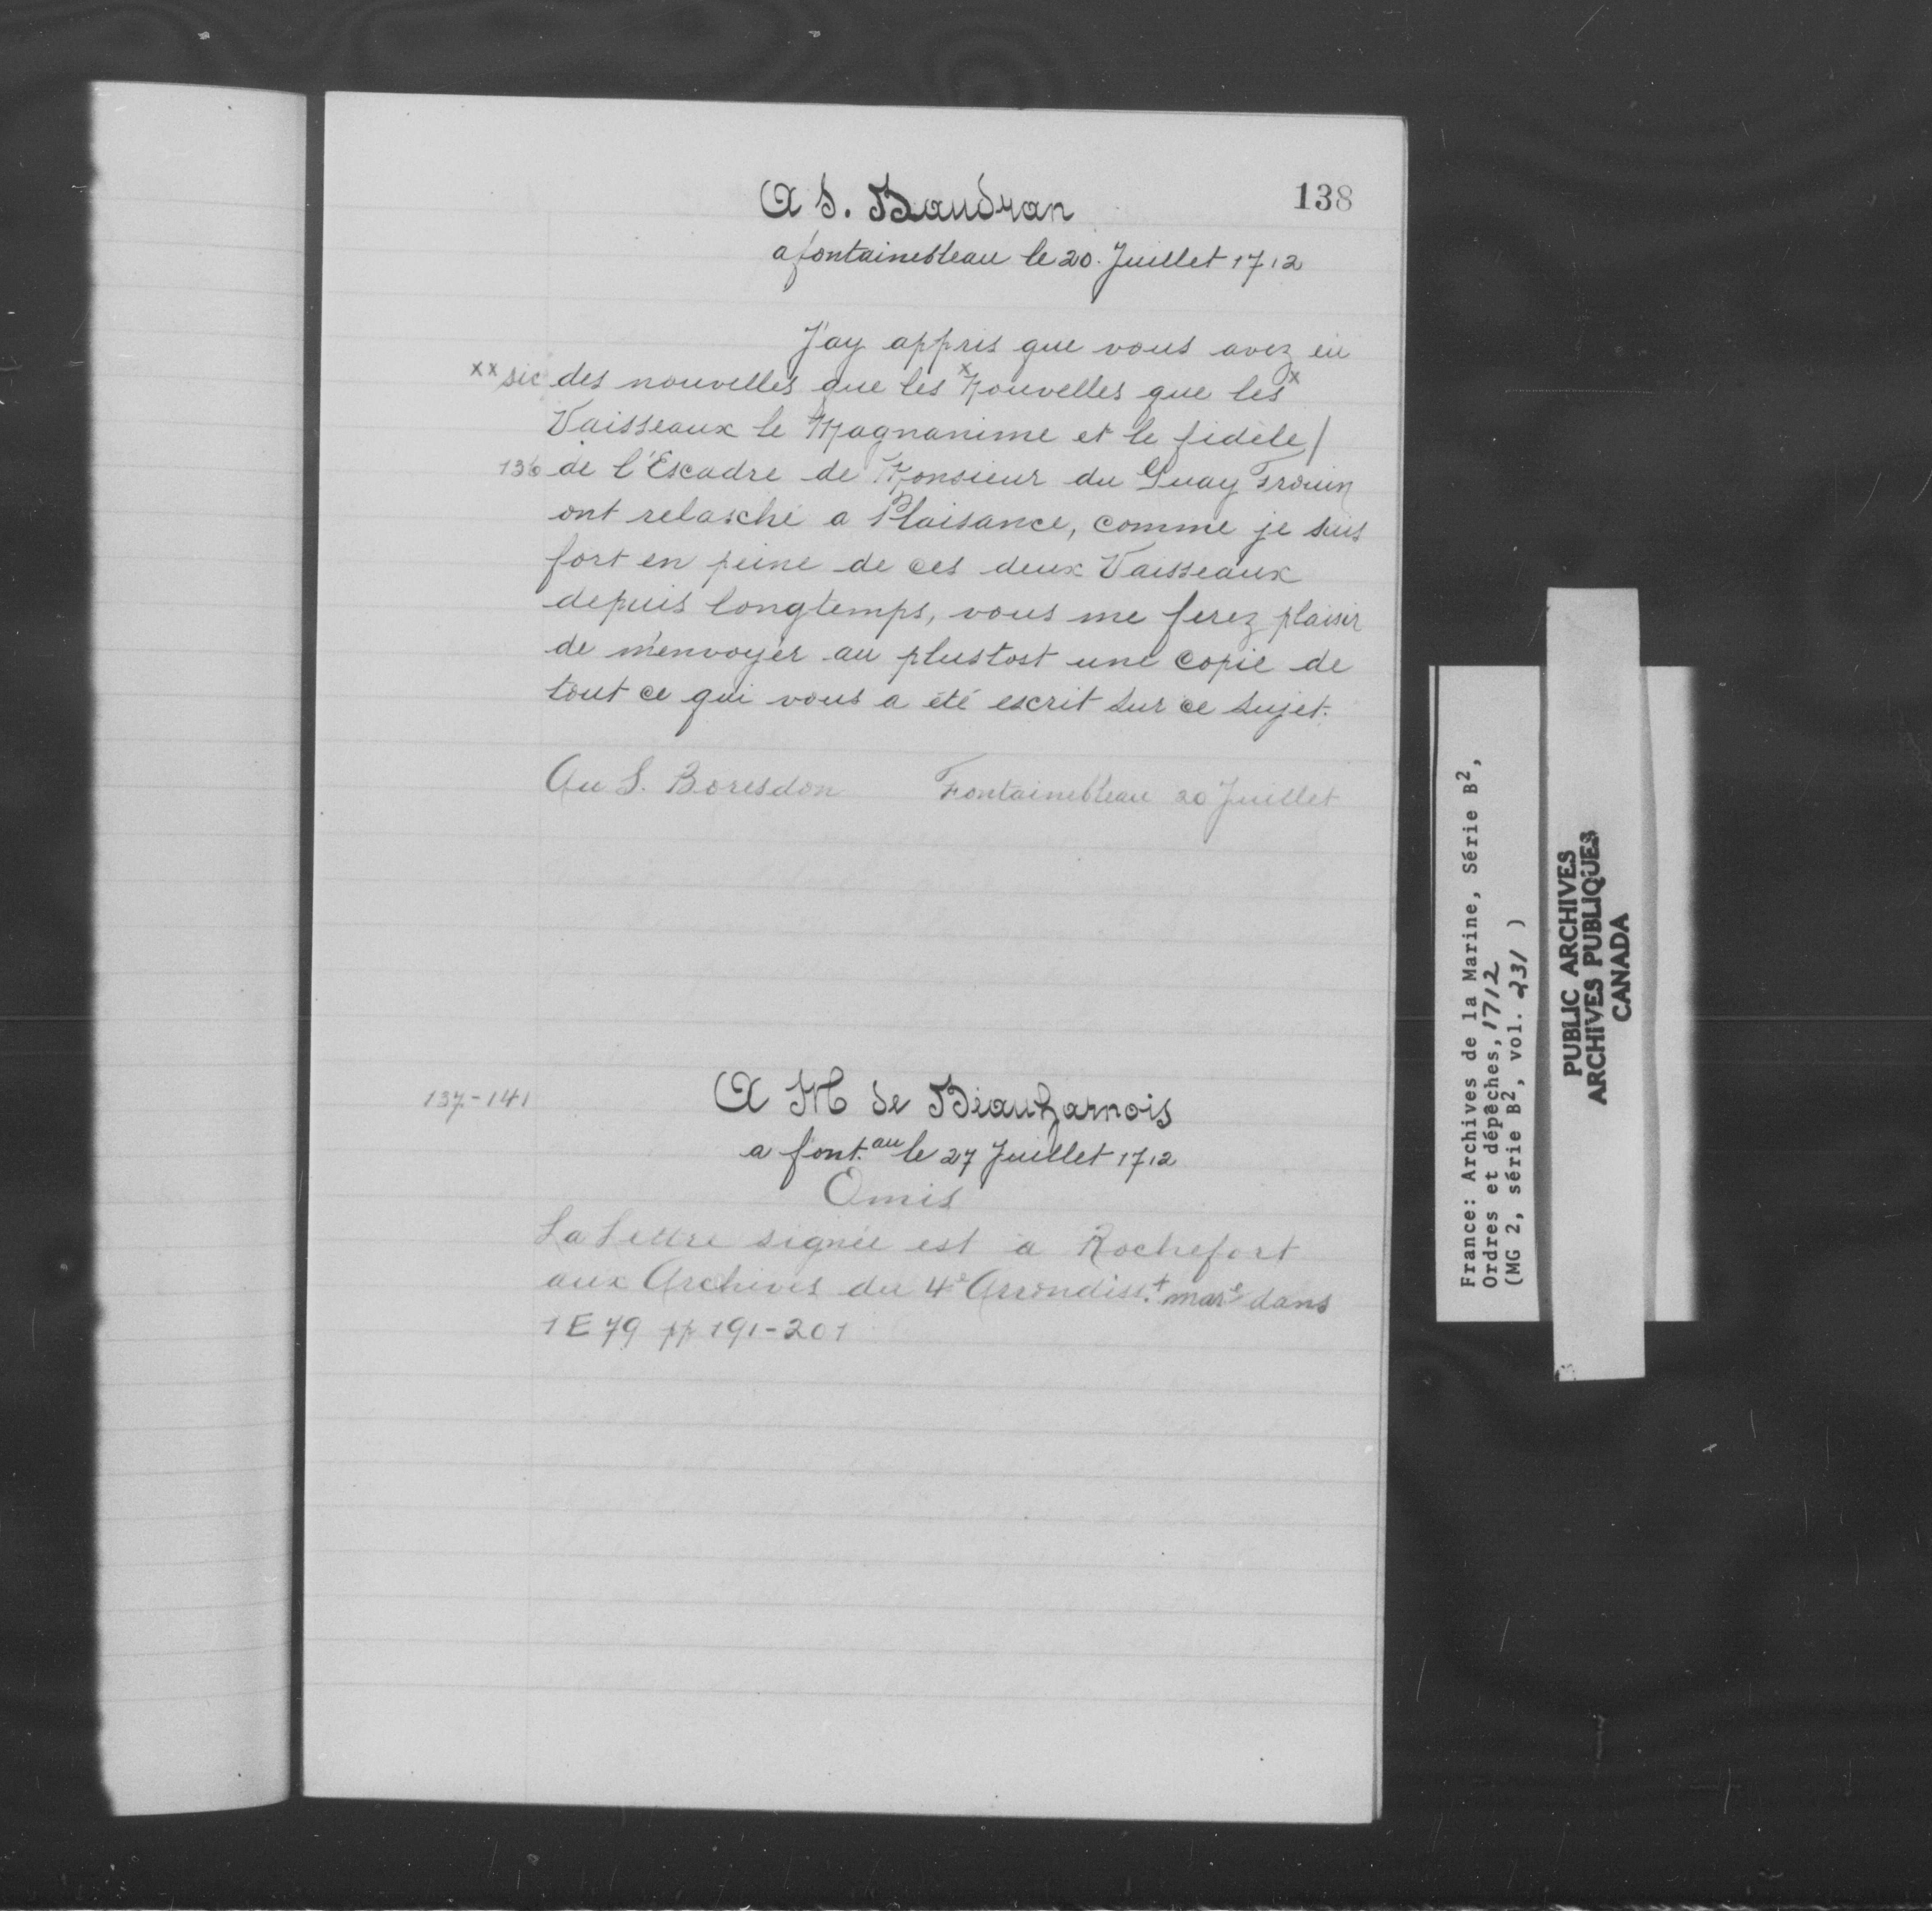 138
A S. Baudran
a fontainebleau le 20. Juillet 1712
J'ay appris que vous avez eu
xx sic des nouvelles que les x Nouvelles que les x
Vaisseaux le Magnanime et le fidele /
136 de l'Escadre de Monsieur du Guay Trouin
ont relasché a Plaisance, comme je suis
fort en peine de ces deux Vaisseaux
depuis longtemps, vous me ferez plaisir
de m'envoyer au plustost une copie de
tout ce qui vous a été escrit sur ce sujet.
Au S. Boresdon Fontainebleau 20 Juillet
137-141 A M de Beauharnois
a font.au le 27 Juillet 1712
Omis
La lettre signée est à Rochefort
aux Archives du 4e Arrondiss.t mare dans
1 E 79 pp 191-201
France: Archives de la Marine, Série B2,
Ordres et dépêches, 1712
(MG 2, série B2, vol. 231 )
PUBLIC ARCHIVES
ARCHIVES PUBLIQUES
CANADA